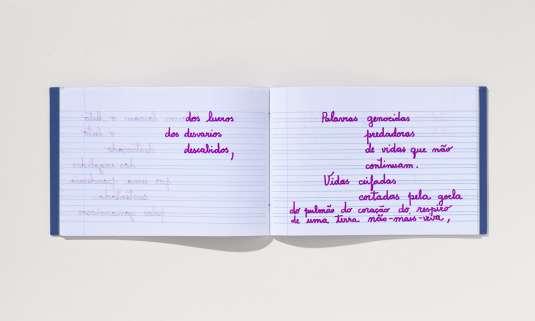 dos lucros
dos desvarios
descabidos,
Palavras genocidas
predadoras
de vidas que não
continuam.
Vidas ceifadas
cortadas pela goela
do pulmão do coração do respiro
de uma terra não-mais-viva,